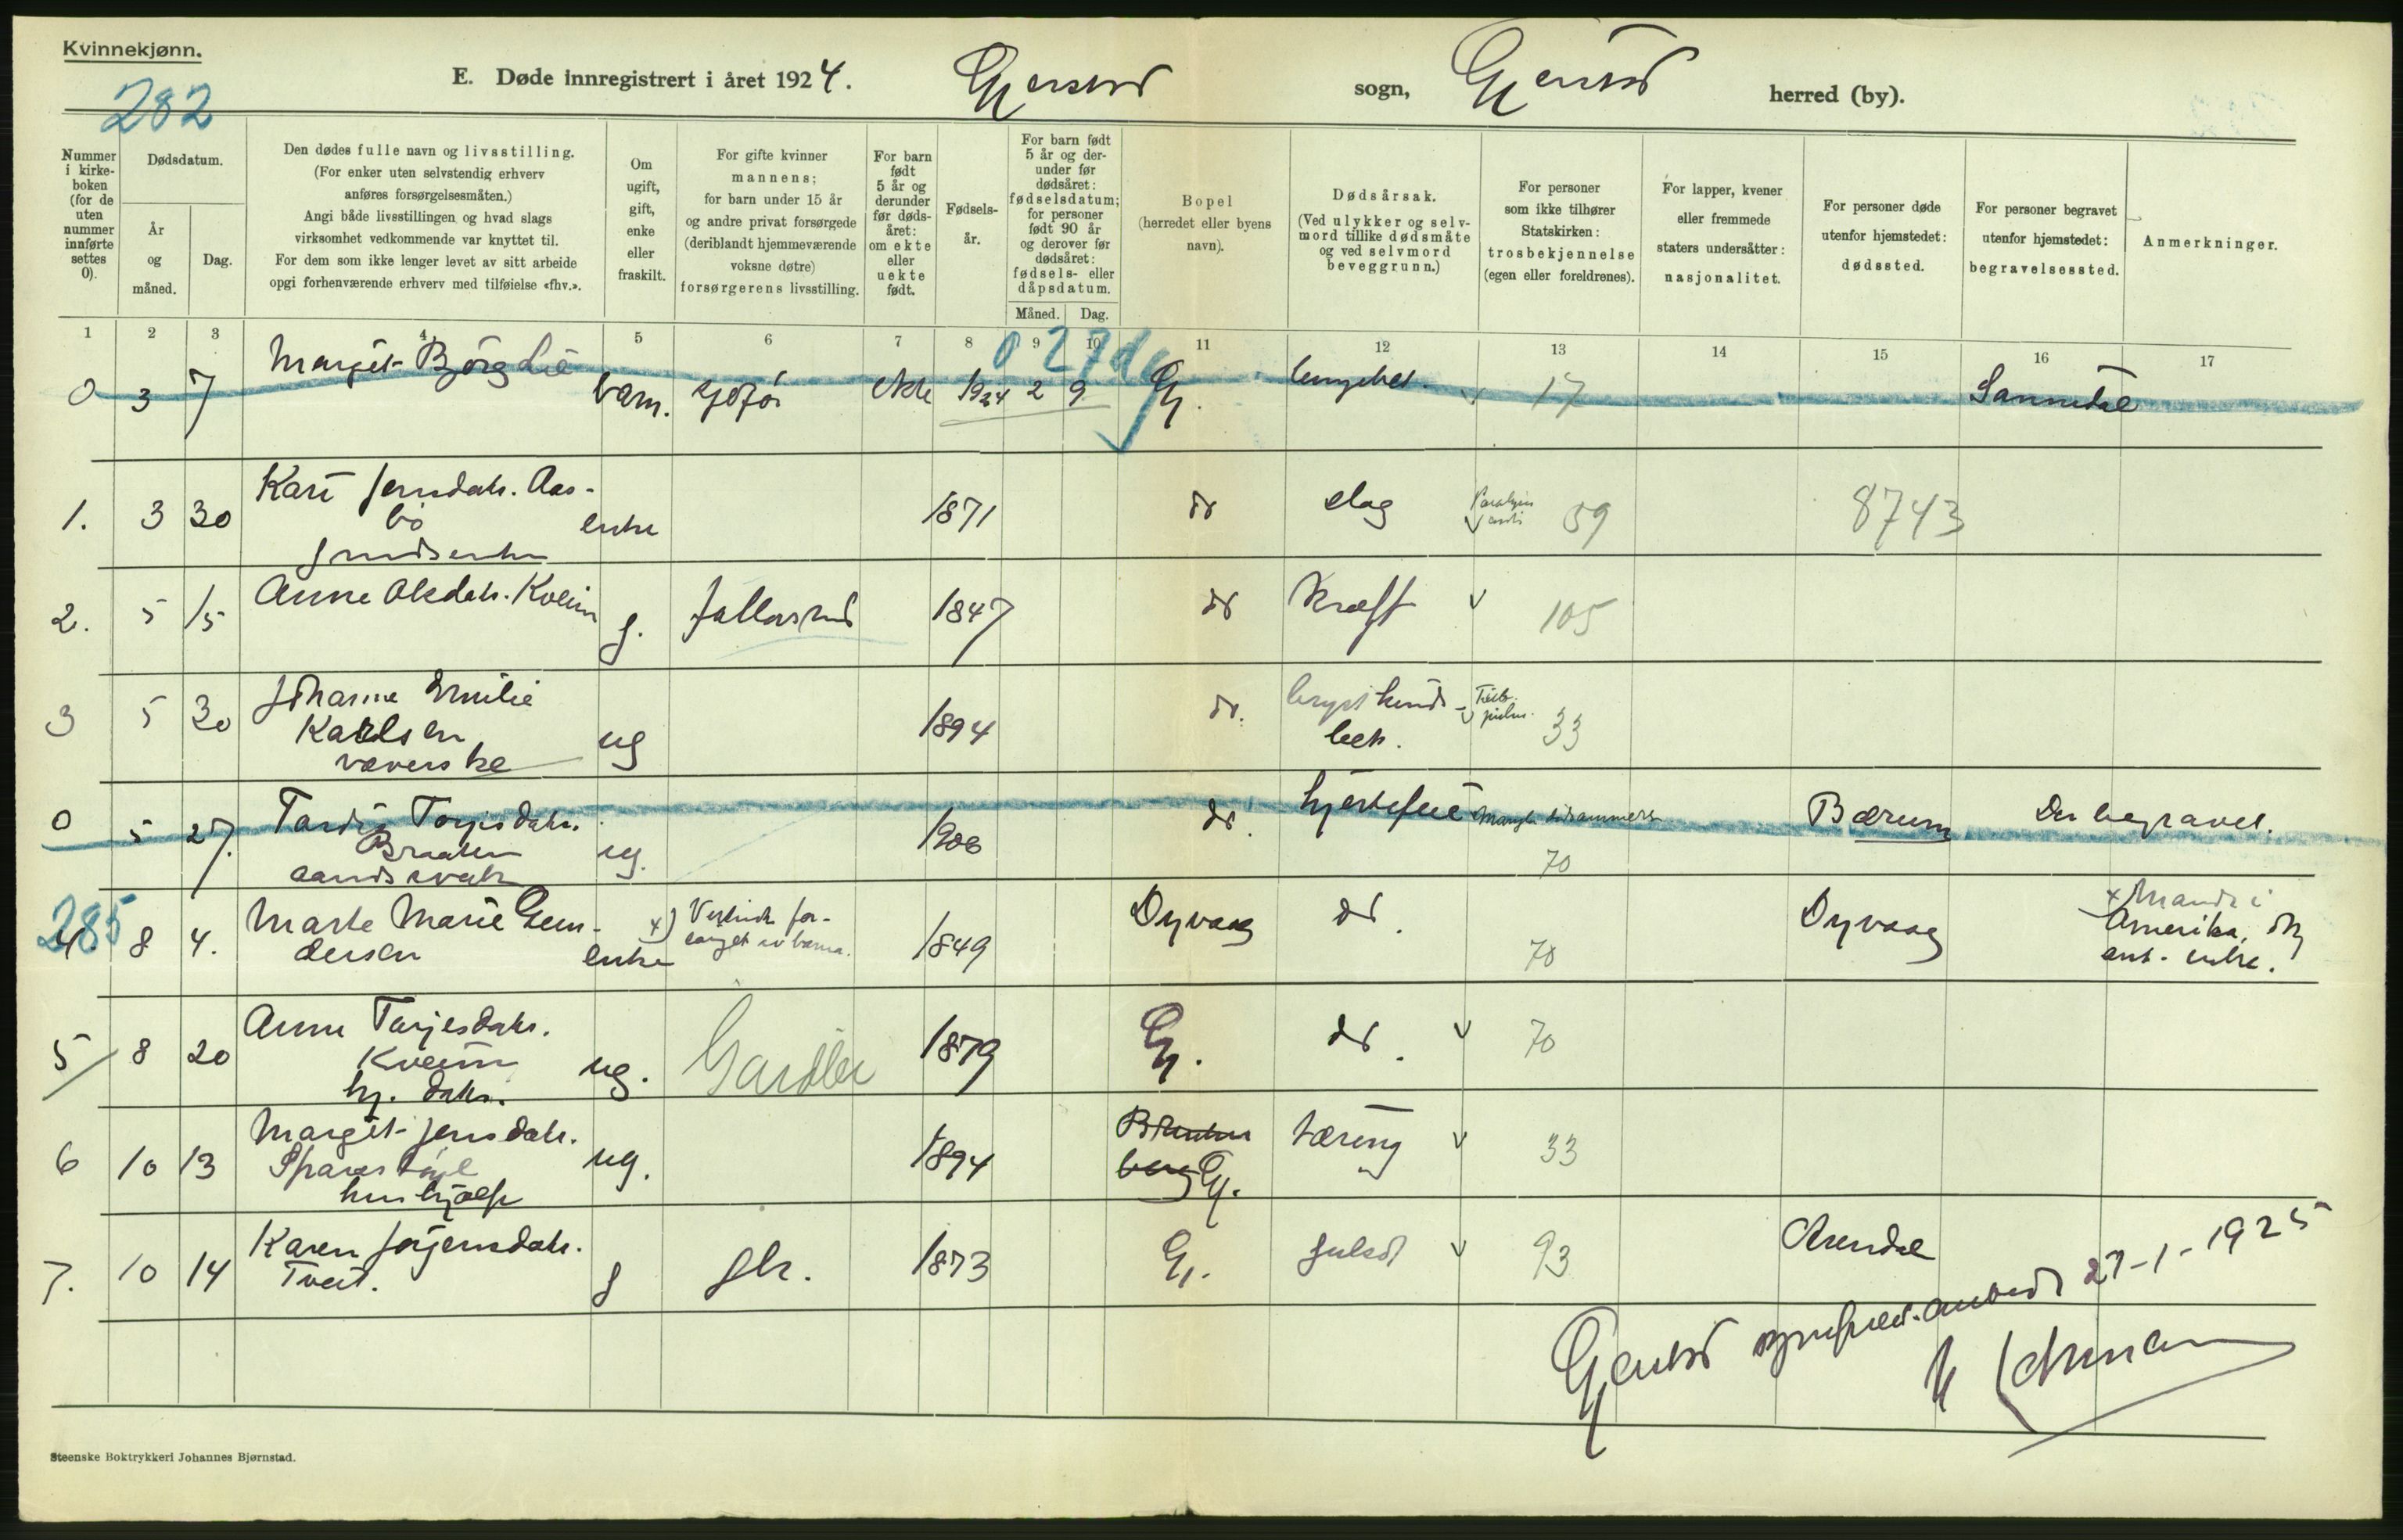 Kvinnekjønn.
E. Døde innregistrert i året 1924. Gjerstad sogn, Gjerstad herred (by).
282
Nummer i kirkeboken (for de uten nummer innførte settes 0).
Dødsdatum.
År og måned.
Dag.
Den dødes fulle navn og livsstilling.
(For enker uten selvstendig erhverv
anføres forsørgelsesmåten.)
Angi både livsstillingen og hvad slags
virksomhet vedkommende var knyttet til.
For dem som ikke lenger levet av sitt arbeide
opgi forhenværende erhverv med tilføielse «fhv.».
Om ugift, gift, enke eller fraskilt.
For gifte kvinner
mannens;
for barn under 15 år
og andre privat forsørgede
(deriblandt hjemmeværende
voksne døtre)
forsørgerens livsstilling.
For barn født 5 år og derunder før dødsåret: om ekte eller uekte født.
Fødselsår.
For barn født 5 år og derunder før dødsåret: fødselsdatum; for personer født 90 år og derover før dødsåret: fødsels- eller dåpsdatum.
Måned. Dag.
Bopel
(herredet eller byens
navn).
Dødsårsak.
(Ved ulykker og selvmord tillike dødsmåte
og ved selvmord
beveggrunn.)
For personer
som ikke tilhører
Statskirken:
trosbekjennelse
(egen eller foreldrenes).
For lapper, kvener
eller fremmede
staters undersåtter:
nasjonalitet.
For personer døde
utenfor hjemstedet:
dødssted.
For personer begravet
utenfor hjemstedet:
begravelsessted.
Anmerkninger.
1 2 3 4 5 6 7 8 9 10 11 12 13 14 15 16 17
0 3 7 Margit Borg Lie barn. ekte 1924 2 9 Gj. 17 Sannidal
1. 3 30 Kari Jensdatr. Aas-
bö enke 1871 do slag 59 8743
2. 5 15 Anne Olsdatr. Kveim g. 1847 do Kræft v 105
3 5 30 Johanne Emilie
Karlsen
væverske ug 1894 do. brysthinde
bet. 33
0 5 27. Torjisdatr.
Braaten ug. 1906 do. hjertefeil 70 Bærum Der begravet.
285
4. 8 4. Marte Marie Gun-
dersen enke 1849 Dyvaag do. 70 Dyvaag
x Mand i
Amerika,
ant. enke.
5 8 20 Anne Tarjesdatr.
Kveim
hj. datr. ug. Gardbr 1879 Gj. do. v 70
6 10 13 Margit Jensdatr.
hushjælp ug. 1894 Gj. tæring v 33
7. 10 14 Karen Jörgensdatr.
Tveit. g gbr. 1873 Gj. gulsot v 93 Arendal
Gjerstad sogneprest.embede 27-1-1925
Steenske Boktrykkeri Johannes Bjørnstad.